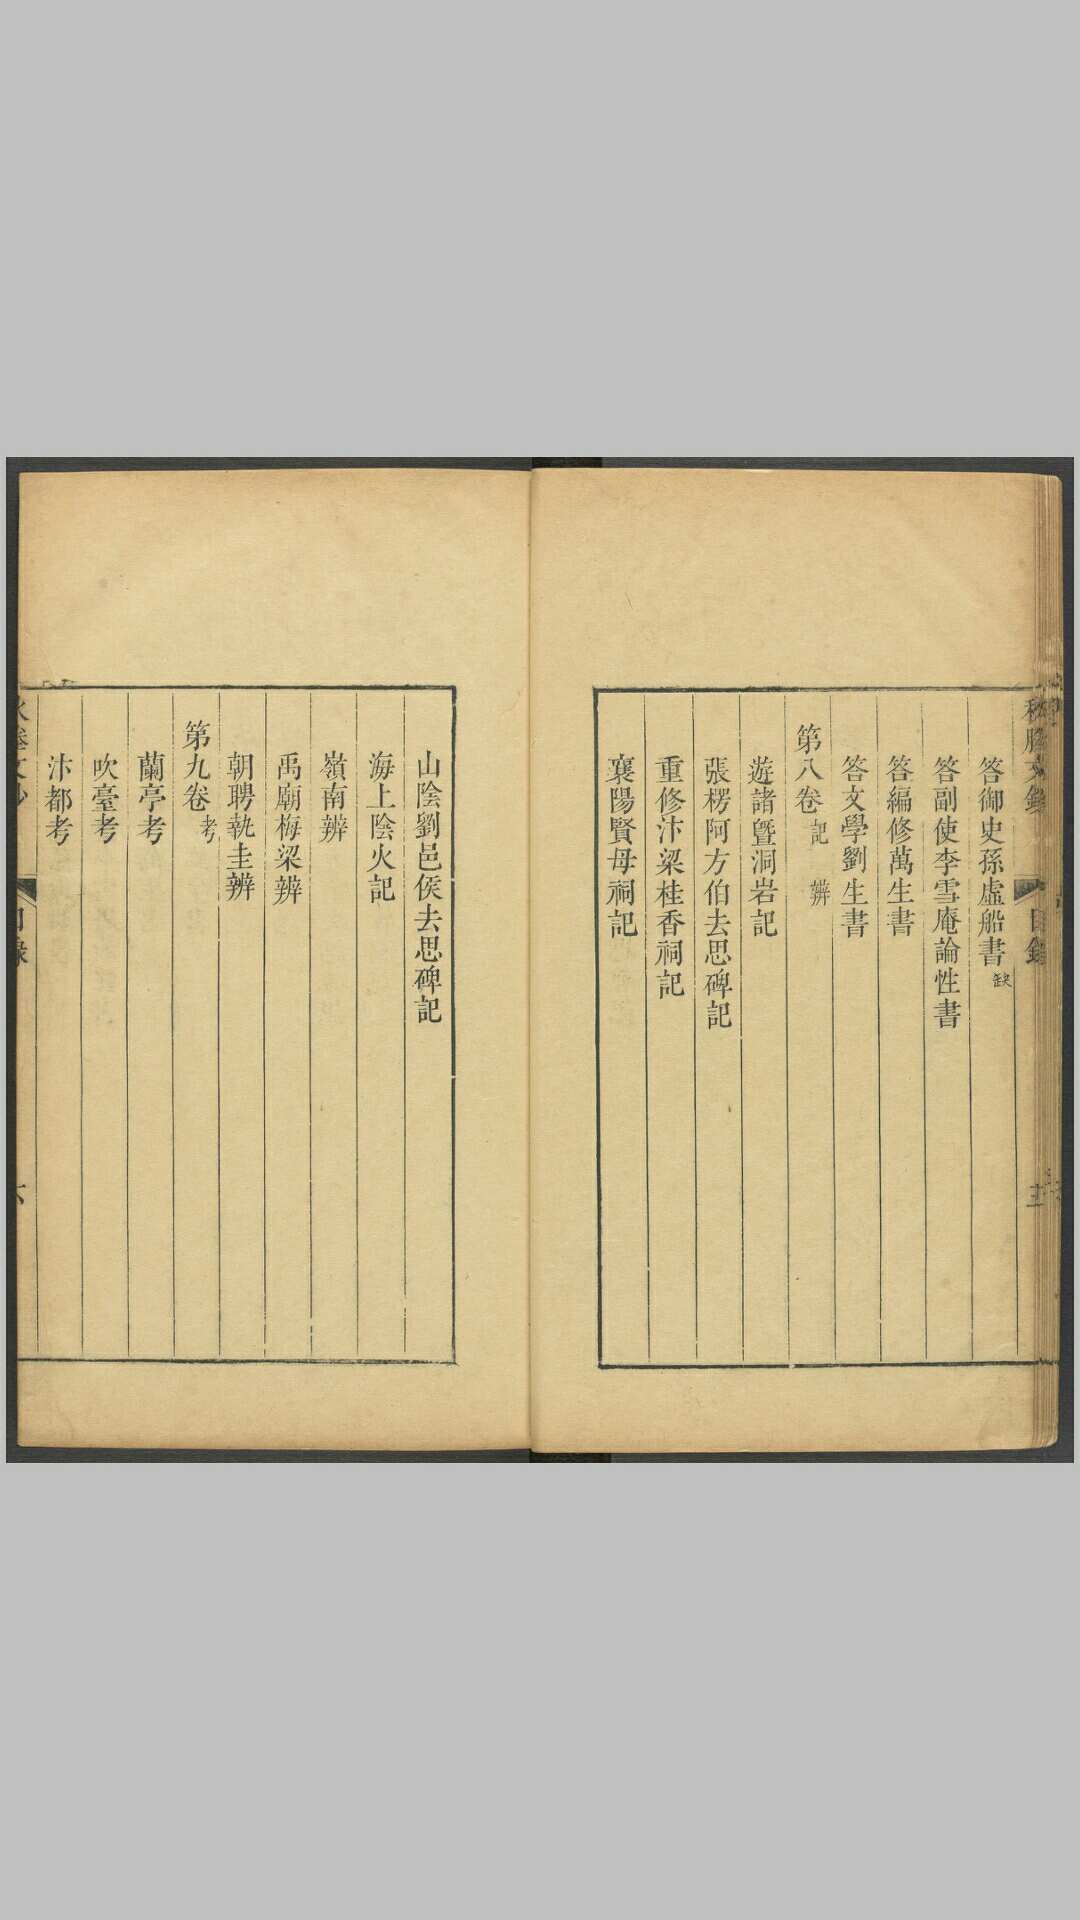 目錄
答御史孫虛船書 缺
答副使李雪庵論性書
答編修萬生書
答文學劉生書
第八卷 記 辨
遊諸暨洞岩記
張楞阿方伯去思碑記
重修汴梁桂香祠記
襄陽賢母祠記
山陰劉邑侯去思碑記
海上陰火記
嶺南辨
禹廟梅梁辨
朝聘執圭辨
第九卷 考
蘭亭考
吹臺考
汴都考